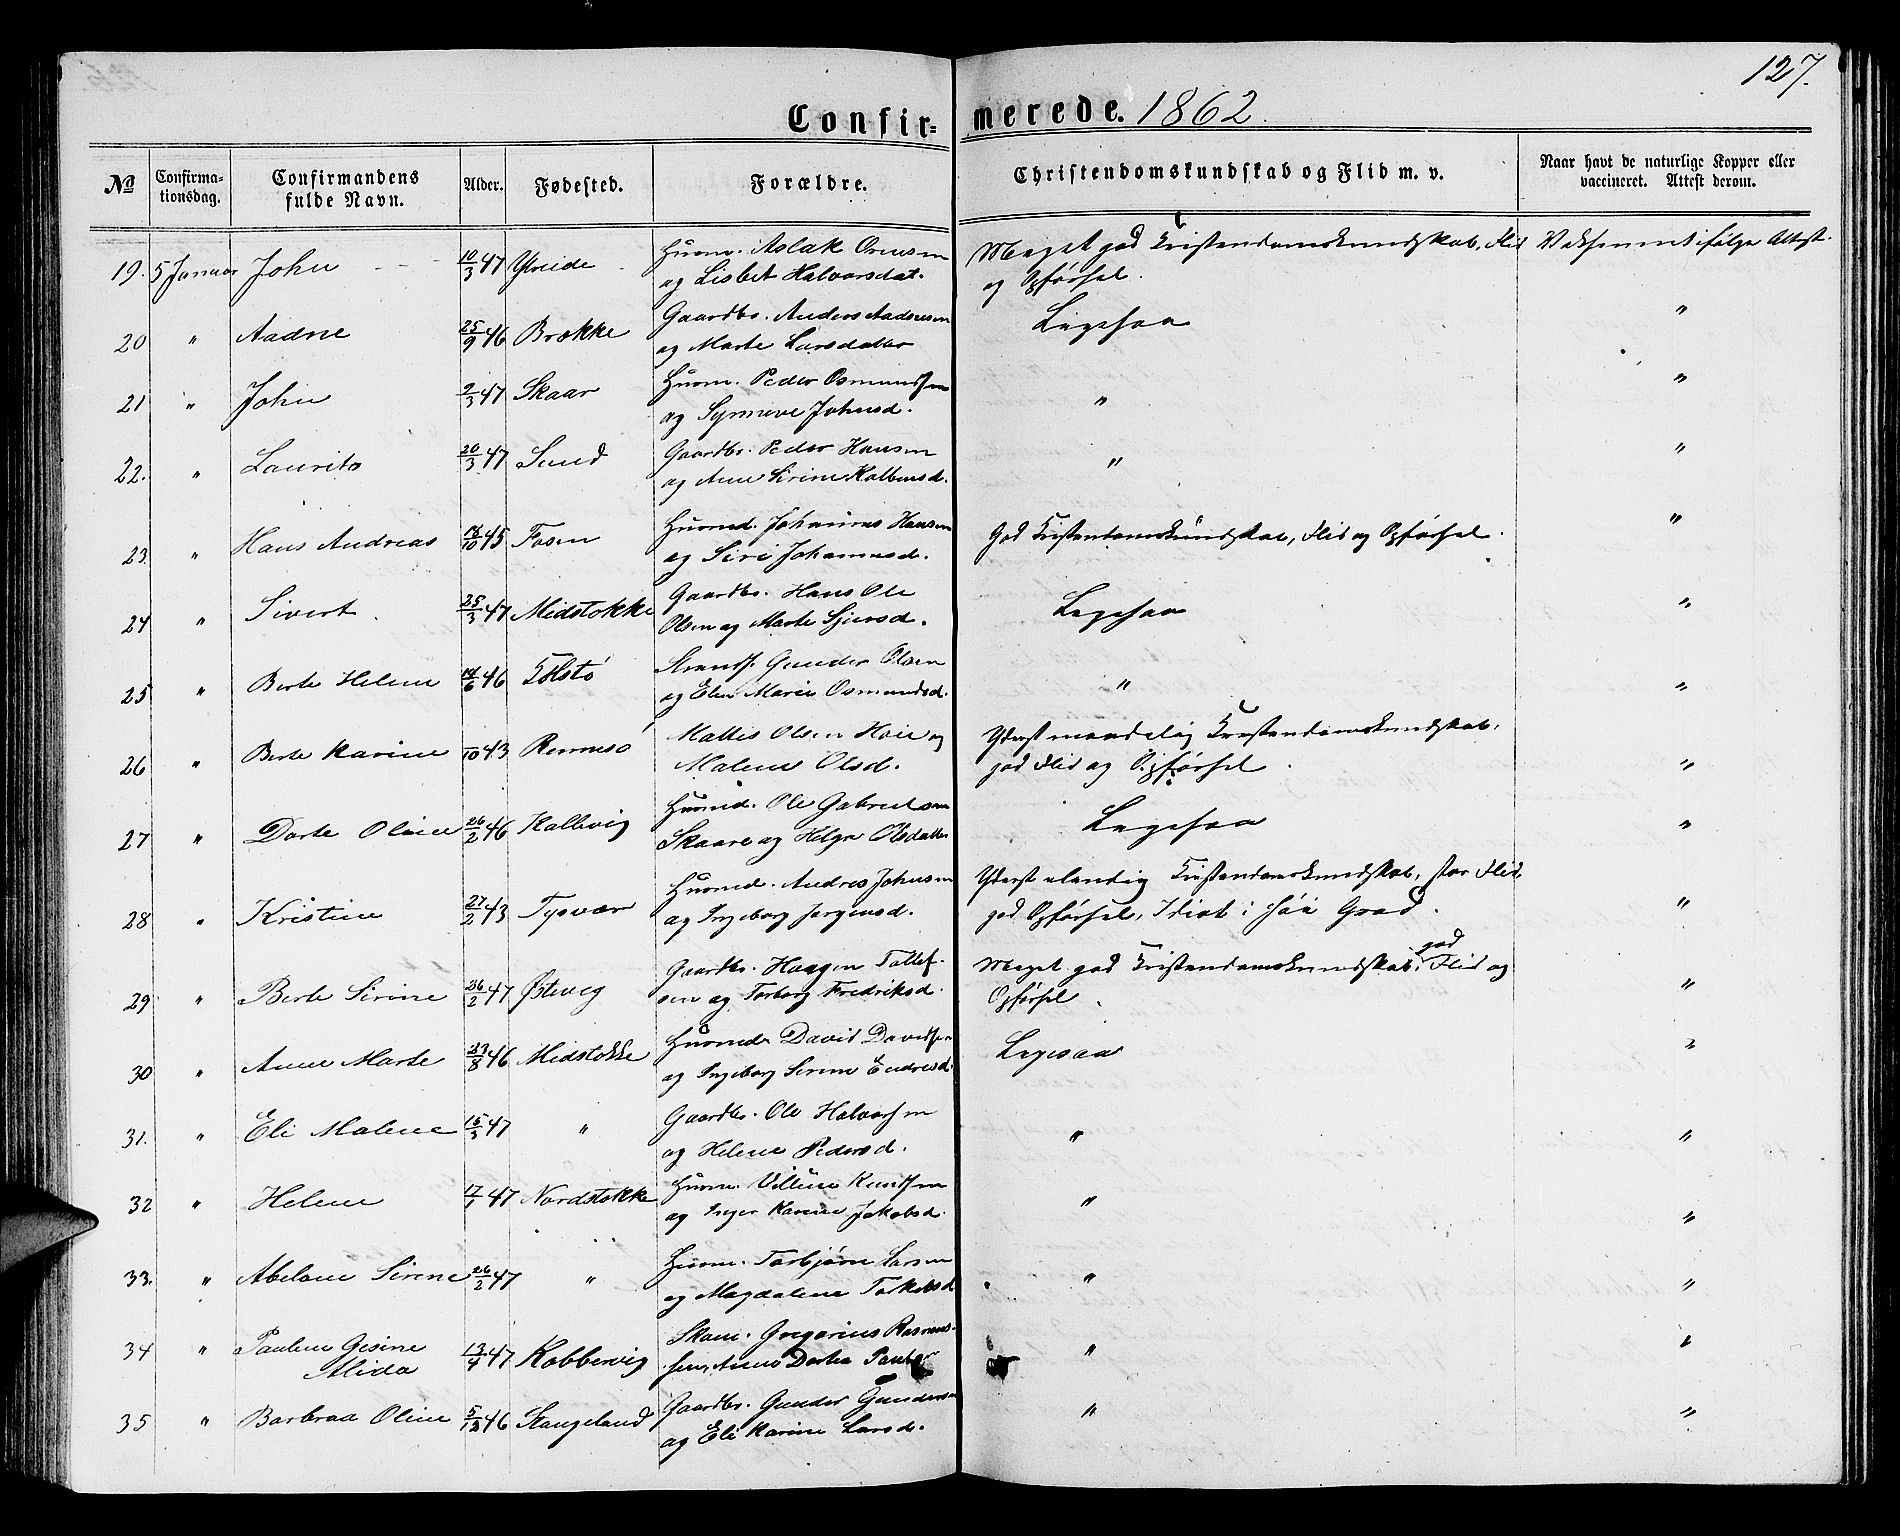 127.
Confir= merede. 1862.
No Confirma-tionsdag. Confirmandens fulde Navn. Alder. Fødested. Forældre. Christendomskundskab og Flid m. v. Naar havt de naturlige Kopper eller vaccineret. Attest derom.
19. 5 Januar John 10/3 47 Husm. Aslak Meget god Kristendomskundskab, Flid ifølge Attest.
og Lisbet Halvorsdat. og Opførsel.
20 " Aadne 25/9 46 Brekke Gaardbr. Anders Aadnesen Ligesaa "
og Marte Larsdatter
21 " John 2/3 47 Skaar Husm. Peder Osmundsen " "
og Synneve Johnsd.
22. " Laurits 20/3 47 Sund Gaardbr. Peder Hansen " "
og Ane Sirine Kolbensd.
23. " Hans Andreas 45 Fosen Husmd. Johannes Hansen God Kristendomskundskab, Flid og Opførsel. "
og Siri Johannesd.
24 " Sivert 25/3 47 Midstokke Gaardbr. Hans Ole Ligesaa "
Olsen og Marte Sjursd.
25 " Berte Helene 46 Strands. Gunder Olsen " "
og Elen Marie Osmundsd.
26 " Berte Karine /10 43 Rennesø Mattis Olsen Hoie og Yderst maadelig Kristendomskundskab,
Malene Olsd. god Flid og Opførsel. "
27 " Dorte Oline 26/2 46 Kallevig Husmd. Ole Gabrielsen Ligesaa "
Skaare og Helga Olsdatter
28 " Kristine 27/2 43 Tysvær Husmd. Andres Johnsen Yderst elendig Kristendomskundskab, stor Flid,
og Ingeborg Jørgensd. god Opførsel, Idiot i høi Grad. "
29 " Berte Sirine 26/2 47 Østevig Gaardbr. Haagen Tollef- Meget god Kristendomskundskab, god Flid og
sen og Torborg Fredriksd. Opførsel. "
30 " Ane Marte 46 Midstokke Husmd. David Davidsen Ligesaa "
og Ingeborg Serine Endresd.
31. " Eli Malene 15/3 47 " Gaardbr. Ole Halvorsen " "
og Helene Pedersd.
32 " Helene 47 Nordstokke Husm. Villum Knudsen " "
og Inger Karine Jakobsd.
33. " Abelone Sirine 26/2 47 " Husm. Torbjørn Larsen " "
og Magdalene
34 " Pauline Gesine 13/4 47 Kobbervig Gregorius Rasmus- " "
Alida sen, Anne Dortea
35 " Barbraa Oline 5/12 46 Stangeland Gaardbr. Gunder Gundersen " "
og Eli Karine Larsd.